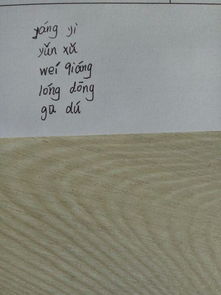 yáng yì
yǔn xǔ
weí qiáng
lóng dōng
gū dú